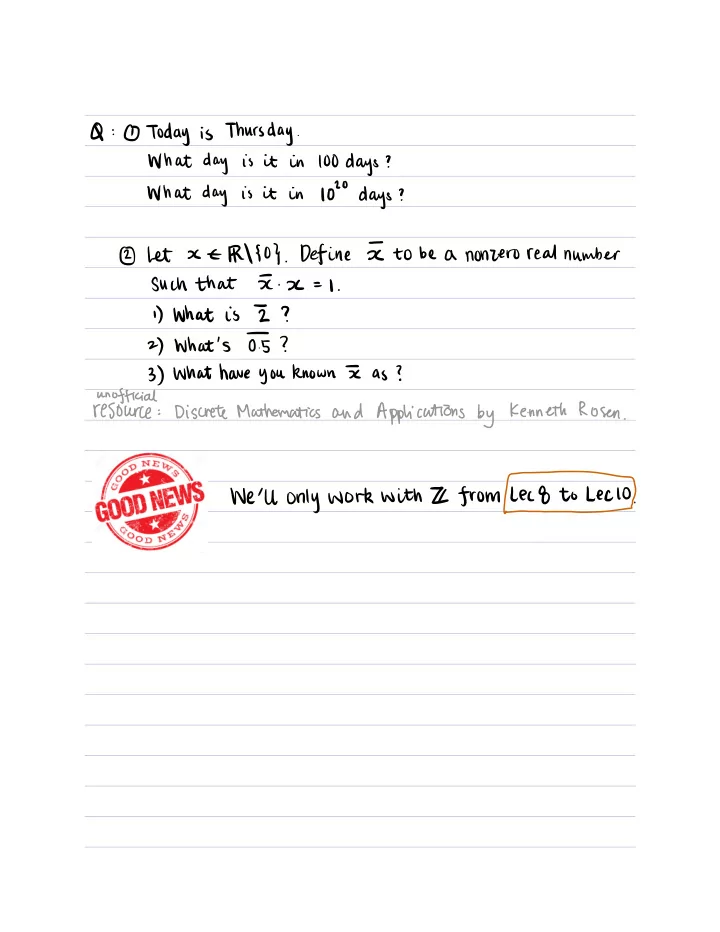 Q: ① Today is Thursday.
What day is it in 100 days?
What day is it in 10²⁰ days?
② Let x ∈ ℝ\{0}. Define x̅ to be a nonzero real number
such that x̅ · x = 1.
1) What is 2̅ ?
2) What's 0̅.̅5̅ ?
3) What have you known x̅ as ?
unofficial
resource: Discrete Mathematics and Applications by Kenneth Rosen.
GOOD NEWS
GOOD NEWS
GOOD NEWS
We'll only work with ℤ from Lec 8 to Lec 10.